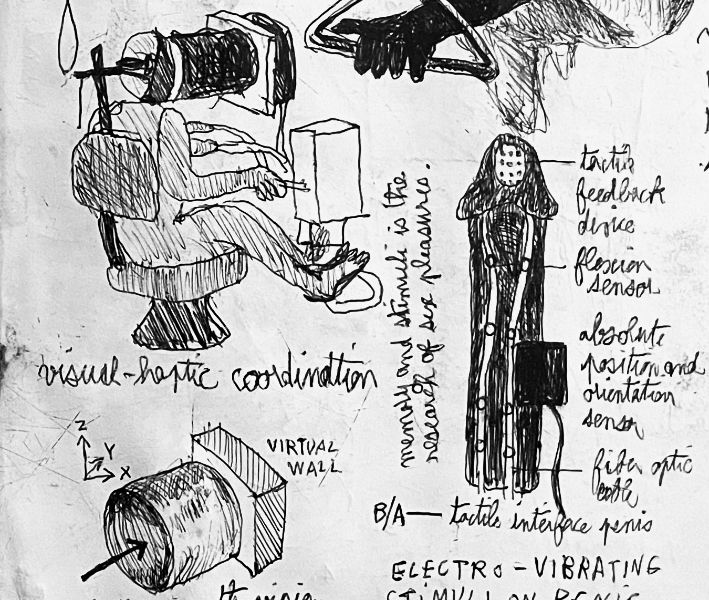 tactile
feedback
device
flexion
sensor
absolute
position and
orientation
sensor
fiber optic
cable
B/A — tactile interface penis
memory and stimuli is the
research of sex pleasures.
visual-haptic coordinattion
Z
Y
X
VIRTUAL
WALL
ELECTRO-VIBRATING